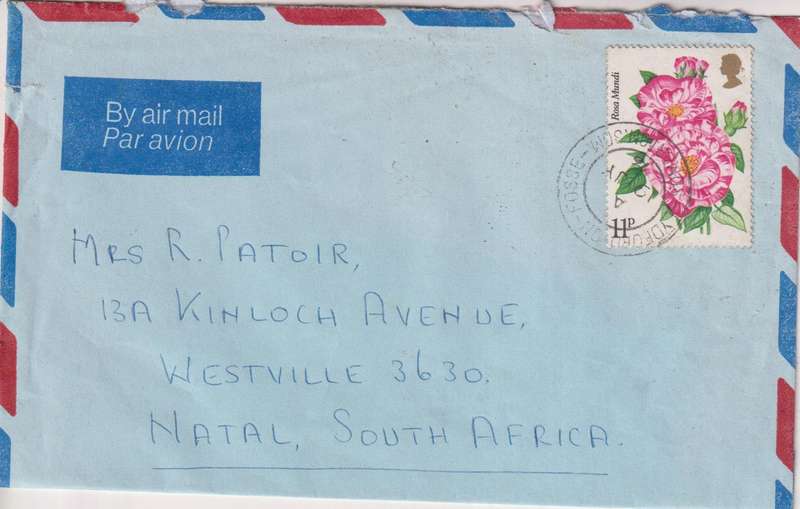 By air mail
Par avion
Rosa Mundi
11P
MRS R. PATOIR,
13A KINLOCH AVENUE,
WESTVILLE 3630.
NATAL, SOUTH AFRICA.